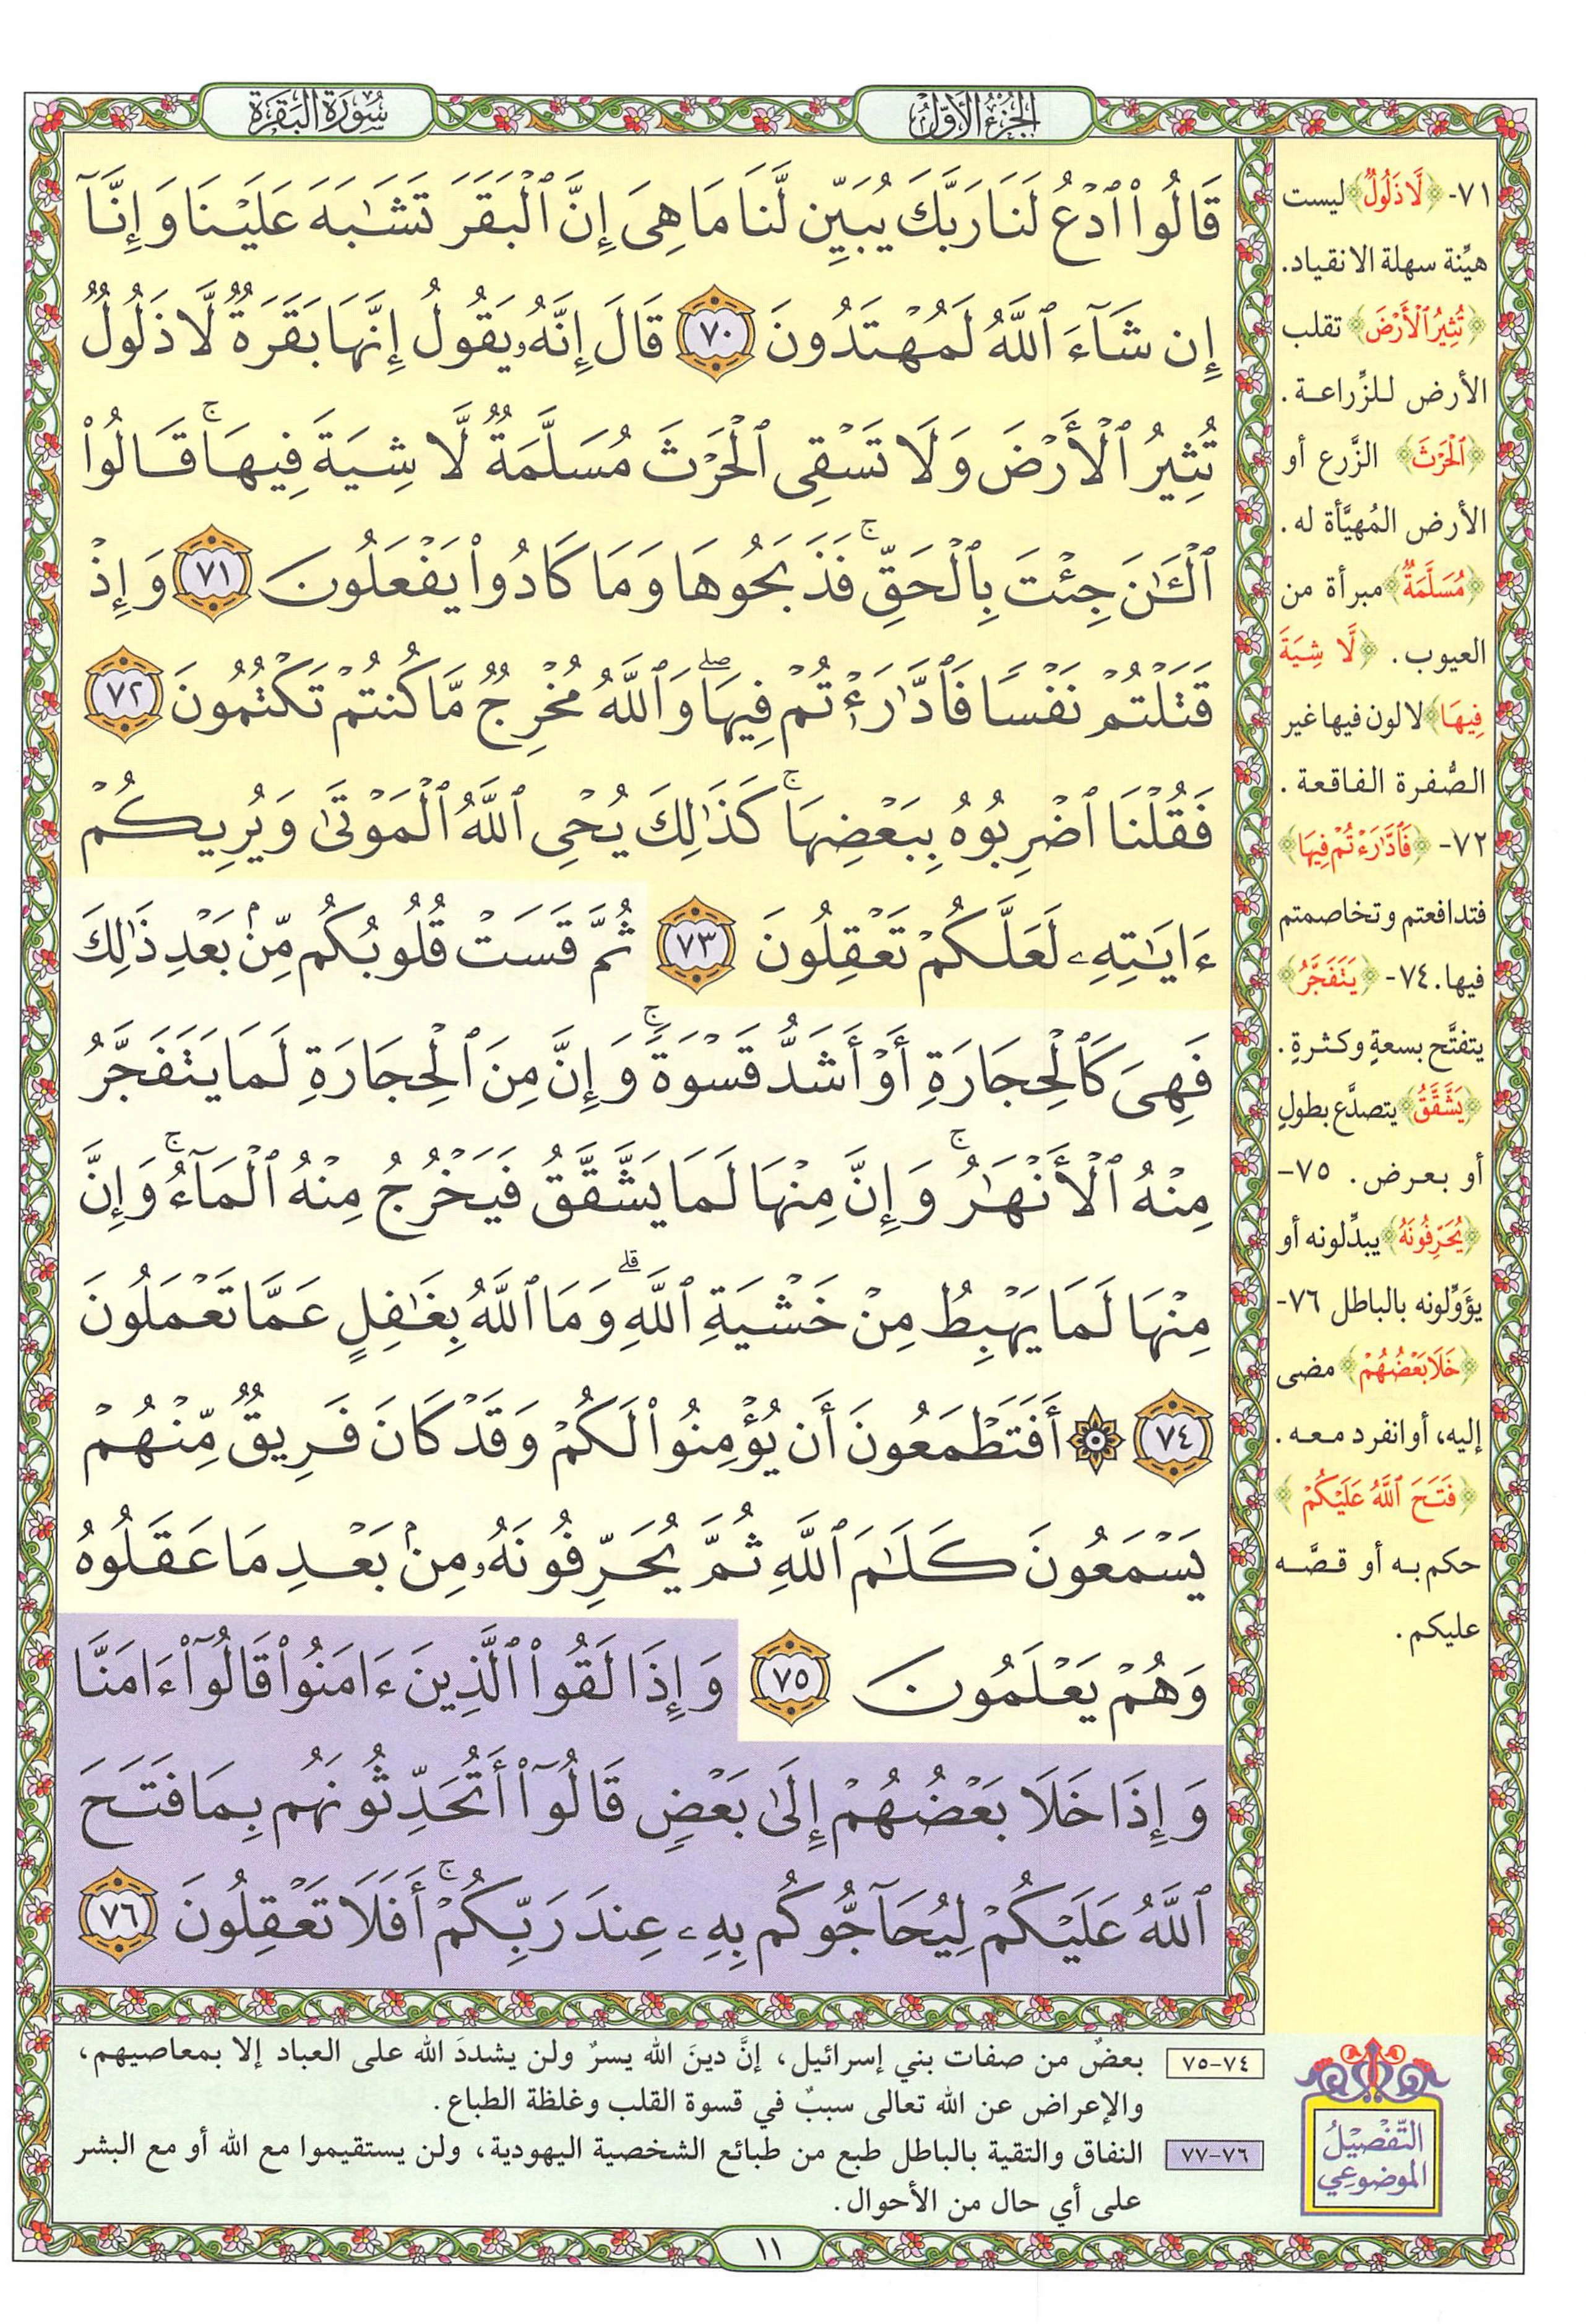 الجزء الأول
سورة البقرة
قَالُوا۟ ٱدْعُ لَنَا رَبَّكَ يُبَيِّن لَّنَا مَا هِىَ إِنَّ ٱلْبَقَرَ تَشَـٰبَهَ عَلَيْنَا وَإِنَّآ
إِن شَآءَ ٱللَّهُ لَمُهْتَدُونَ ٧٠ قَالَ إِنَّهُۥ يَقُولُ إِنَّهَا بَقَرَةٌ لَّا ذَلُولٌ
تُثِيرُ ٱلْأَرْضَ وَلَا تَسْقِى ٱلْحَرْثَ مُسَلَّمَةٌ لَّا شِيَةَ فِيهَا ۚ قَالُوا۟
ٱلْـَٔـٰنَ جِئْتَ بِٱلْحَقِّ ۚ فَذَبَحُوهَا وَمَا كَادُوا۟ يَفْعَلُونَ ٧١ وَإِذْ
قَتَلْتُمْ نَفْسًا فَٱدَّٰرَْٰٔتُمْ فِيهَا ۖ وَٱللَّهُ مُخْرِجٌ مَّا كُنتُمْ تَكْتُمُونَ ٧٢
فَقُلْنَا ٱضْرِبُوهُ بِبَعْضِهَا ۚ كَذَٰلِكَ يُحْىِ ٱللَّهُ ٱلْمَوْتَىٰ وَيُرِيكُمْ
ءَايَـٰتِهِۦ لَعَلَّكُمْ تَعْقِلُونَ ٧٣ ثُمَّ قَسَتْ قُلُوبُكُم مِّنۢ بَعْدِ ذَٰلِكَ
فَهِىَ كَٱلْحِجَارَةِ أَوْ أَشَدُّ قَسْوَةً ۚ وَإِنَّ مِنَ ٱلْحِجَارَةِ لَمَا يَتَفَجَّرُ
مِنْهُ ٱلْأَنْهَـٰرُ ۚ وَإِنَّ مِنْهَا لَمَا يَشَّقَّقُ فَيَخْرُجُ مِنْهُ ٱلْمَآءُ ۚ وَإِنَّ
مِنْهَا لَمَا يَهْبِطُ مِنْ خَشْيَةِ ٱللَّهِ ۗ وَمَا ٱللَّهُ بِغَـٰفِلٍ عَمَّا تَعْمَلُونَ
٧٤ ۞ أَفَتَطْمَعُونَ أَن يُؤْمِنُوا۟ لَكُمْ وَقَدْ كَانَ فَرِيقٌ مِّنْهُمْ
يَسْمَعُونَ كَلَـٰمَ ٱللَّهِ ثُمَّ يُحَرِّفُونَهُۥ مِنۢ بَعْدِ مَا عَقَلُوهُ
وَهُمْ يَعْلَمُونَ ٧٥ وَإِذَا لَقُوا۟ ٱلَّذِينَ ءَامَنُوا۟ قَالُوٓا۟ ءَامَنَّا
وَإِذَا خَلَا بَعْضُهُمْ إِلَىٰ بَعْضٍ قَالُوٓا۟ أَتُحَدِّثُونَهُم بِمَا فَتَحَ
ٱللَّهُ عَلَيْكُمْ لِيُحَآجُّوكُم بِهِۦ عِندَ رَبِّكُمْ ۚ أَفَلَا تَعْقِلُونَ ٧٦
٧١- ﴿لَّا ذَلُولٌ﴾ ليست
هيِّنة سهلة الانقياد.
﴿تُثِيرُ ٱلْأَرْضَ﴾ تقلب
الأرض للزِّراعة.
﴿ٱلْحَرْثَ﴾ الزَّرع أو
الأرض المُهيَّأة له.
﴿مُسَلَّمَةٌ﴾ مبرأة من
العيوب. ﴿لَّا شِيَةَ
فِيهَا﴾ لا لون فيها غير
الصُّفرة الفاقعة.
٧٢- ﴿فَٱدَّٰرَْٰٔتُمْ فِيهَا﴾
فتدافعتم وتخاصمتم
فيها. ٧٤- ﴿يَتَفَجَّرُ﴾
يتفتَّح بسعةٍ وكثرةٍ.
﴿يَشَّقَّقُ﴾ يتصدَّع بطولٍ
أو بعرض. ٧٥-
﴿يُحَرِّفُونَهُ﴾ يبدِّلونه أو
يؤوِّلونه بالباطل ٧٦-
﴿خَلَا بَعْضُهُمْ﴾ مضى
إليه، أو انفرد معه.
﴿فَتَحَ ٱللَّهُ عَلَيْكُمْ﴾
حكم به أو قصَّه
عليكم.
التفصيل
الموضوعي
٧٤-٧٥ بعضٌ من صفات بني إسرائيل، إنَّ دينَ الله يسرٌ ولن يشددَ الله على العباد إلا بمعاصيهم،
والإعراض عن الله تعالى سببٌ في قسوة القلب وغلظة الطباع.
٧٦-٧٧ النفاق والتقية بالباطل طبع من طبائع الشخصية اليهودية، ولن يستقيموا مع الله أو مع البشر
على أي حال من الأحوال.
١١